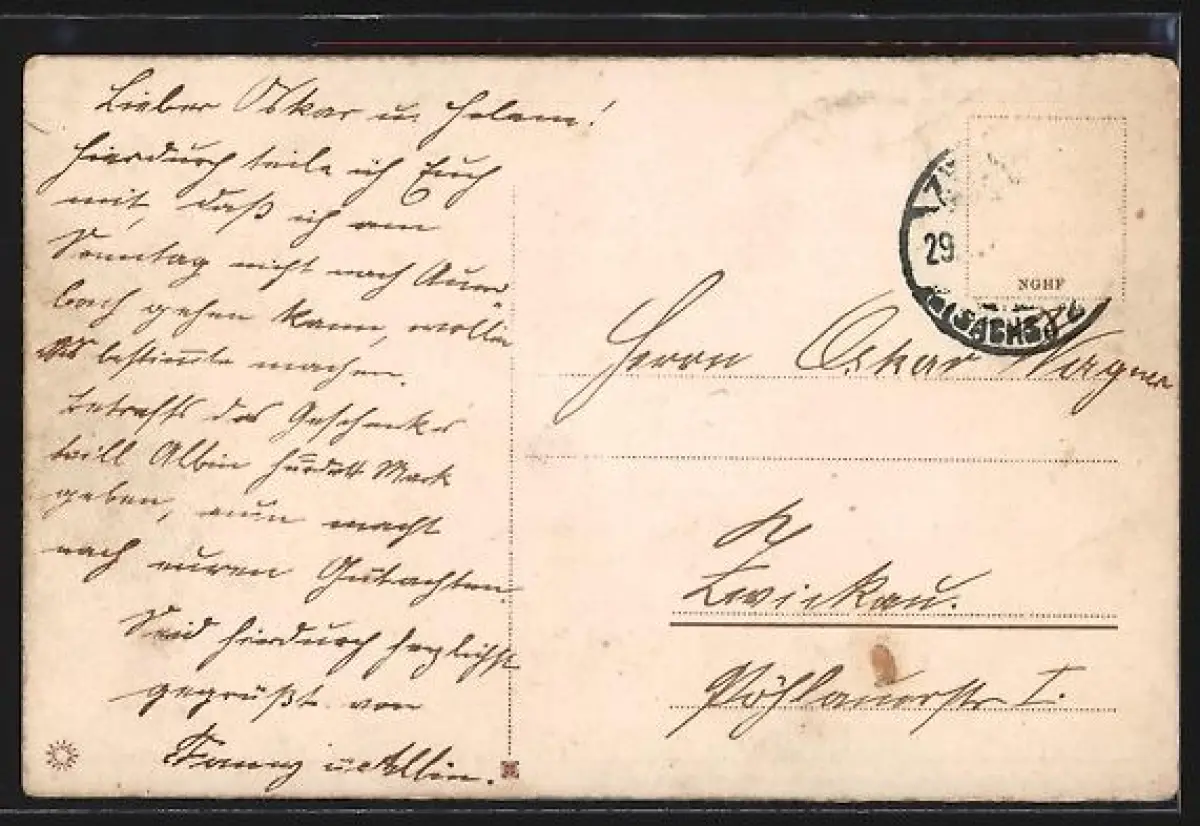 Lieber Oskar u. Helene!
Hierdurch teile ich Euch
mit, daß ich am
Sonntag nicht nach Auer-
bach gehen kann, wollen
bestimmte machen.
Betreffs des Geschenkes
will Albin Mark
geben, nun macht
nach euren Gutachten.
Seid hierdurch herzlichst
gegrüßt von
Fanny u. Albin.
29
(SACHSEN)
NGHF
Herrn Oskar Wagner
Zwickau.
Pöhlauerstr I.